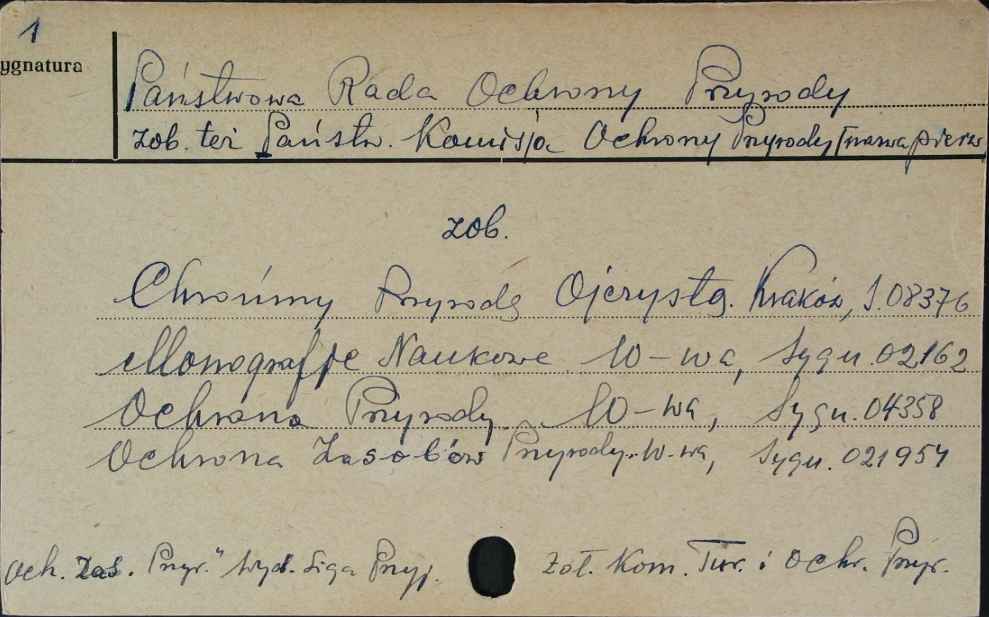 1
ygnatura
Państwowa Rada Ochrony Przyrody
zob. też Państw. Komisja Ochrony Przyrody [nazwa pierw
zob.
Chrońmy Przyrodę Ojczystą. Kraków, S. 08376
Monografie Naukowe W-wa, Sygn. 02162
Ochrona Przyrody. W-wa, Sygn. 04358
Ochrona Zasobów Przyrody. W-wa, Sygn. 021954
Och. Zas. Przyr." wyd. Liga Przyj. Zał. Kom. Tur. i Ochr. Przyr.